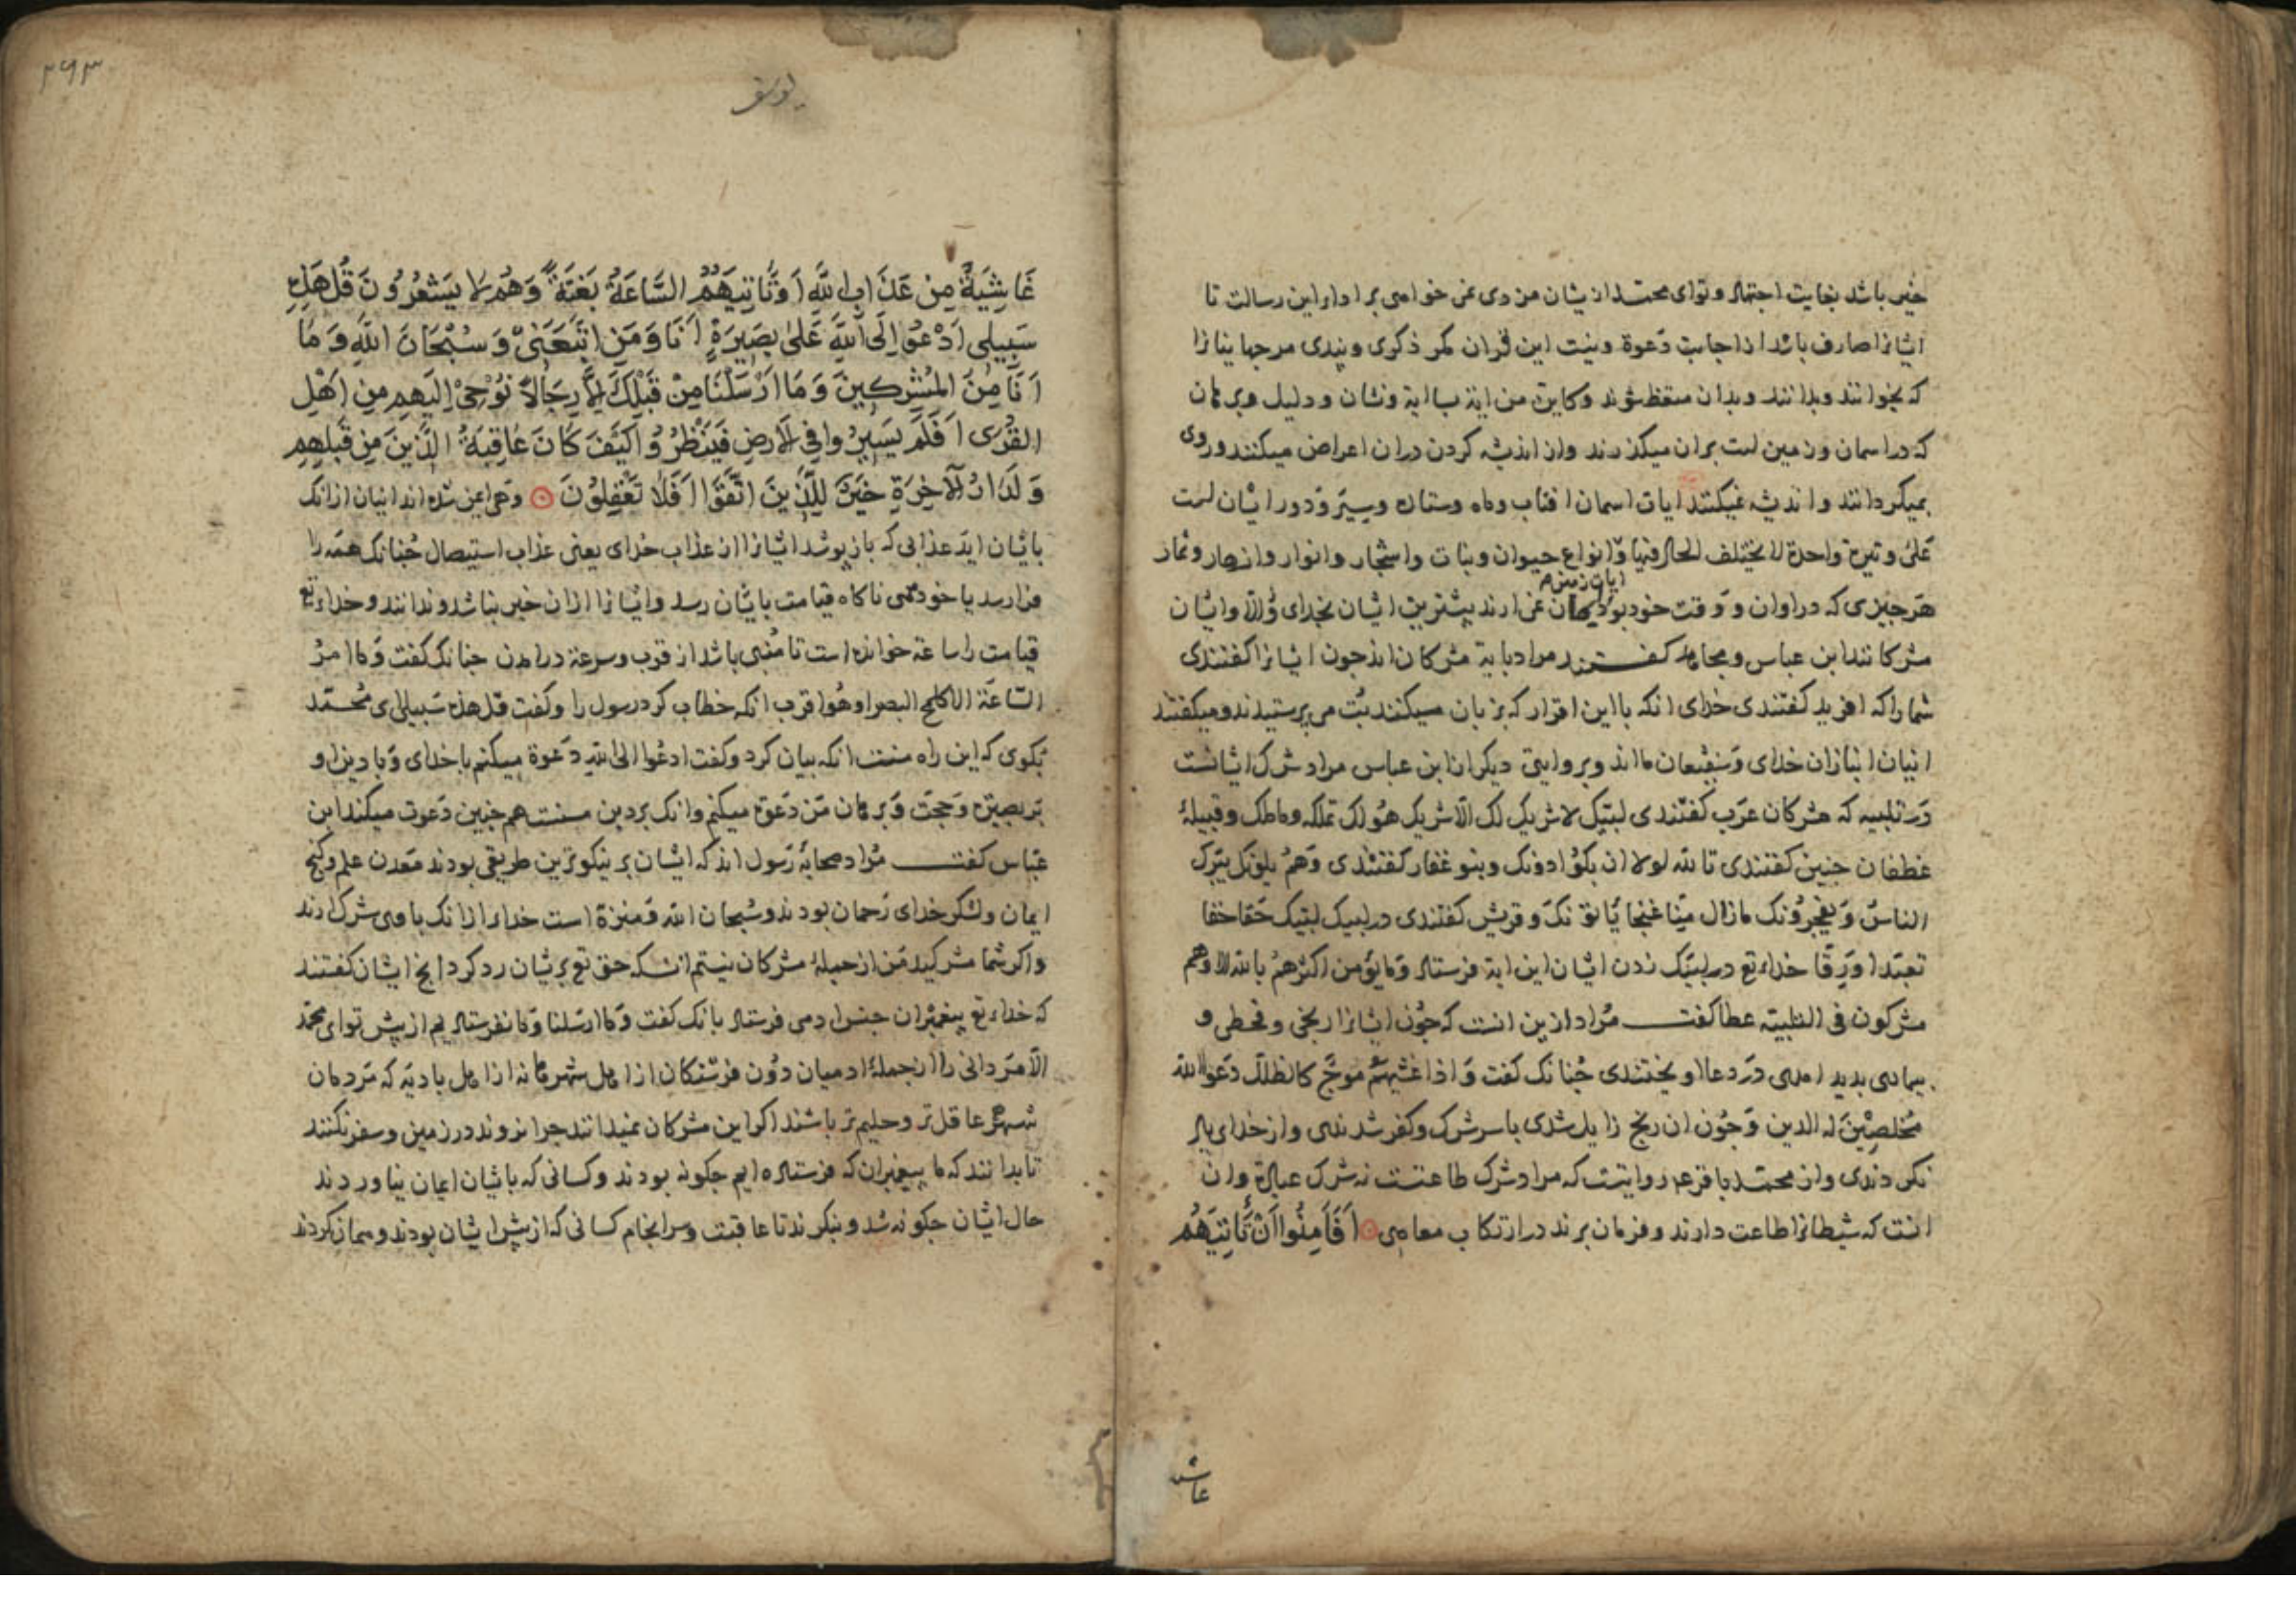 خیر باشد بغایت اجتهاد و توای محمد ازیشان مزدی نمی خواهی بر اداء این رسالت تا
ایشانرا صارف باشد از اجابت دعوة و نیست این قرآن مگر ذکری و پندی مر جهانیانرا
که بخوانند و بدانند و بدان متعظ شوند و کاین من ایة بسا ایة و نشان و دلیل و برهان
که در اسمان و زمین است بران میکذرند و از اندیشه کردن دران اعراض میکنند و روی
بمیکردانند و اندیشه نمیکنند ایات اسمان افتاب و ماه و ستاره و سیر و دور ایشان است
علی وتیرة واحدة لا یختلف الحال فیها و انواع حیوان و نبات و اشجار و انوار و ازهار و ثمار
ایات زمین
هر چیزی که در اوان و وقت خود بود ایمان نمی ارند بیشترین ایشان بخدای الا و ایشان
مشرکانند ابن عباس و مجاهد کفتند مراد باین مشرکان اند چون ایشانرا کفتندی
شما را که افرید کفتندی خدای انکه با این اقرار که بزبان میکنند بت می پرستیدند و میکفتند
اینان انبازان خدای و شفیعان ما اند و بروایتی دیکر از ابن عباس مراد شرک ایشانست
در تلبیه که مشرکان عرب کفتندی لبیک لا شریک لک الا شریک هو لک تملکه و ما ملک و قبیلهٔ
غطفان چنین کفتندی تا لله لولا ان بکرا دونک و بنو غفار کفتندی و هم یلونک یترک
الناس و یفجرونک ما زال منا عثجا یاتونک و قریش کفتندی در لبیک لبیک حقا حقا
تعبدا و رقا خداء تع در لبیک زدن ایشان این ایة فرستاد و ما یؤمن اکثرهم بالله الا و هم
مشرکون فی التلبیة عطا کفت مراد ازین انست که چون ایشانرا رنجی و قحطی و
بیماری بدید امدی در دعا اویختندی چنانک کفت و اذا غشیهم موج کالظلل دعوا الله
مخلصین له الدین و چون ان رنج زایل شدی با سر شرک و کفر شدندی و از خدای یاد
نکردندی و از محمد باقر عم روایتست که مراد شرک طاعتست نه شرک عبادة و ان
انست که شیطانرا طاعت دارند و فرمان برند در ارتکاب معاصی افامنوا ان تاتیهم
غاش
۳۶۳
یوسف
غَاشِیَةٌ مِنْ عَذَابِ اللّٰهِ اَوْ تَاْتِیَهُمُ السَّاعَةُ بَغْتَةً وَهُمْ لَا یَشْعُرُونَ قُلْ هٰذِهِ
سَبِیلِی اَدْعُوا اِلَی اللّٰهِ عَلٰی بَصِیرَةٍ اَنَا وَمَنِ اتَّبَعَنِی وَسُبْحَانَ اللّٰهِ وَمَا
اَنَا مِنَ الْمُشْرِکِینَ وَمَا اَرْسَلْنَا مِنْ قَبْلِکَ اِلَّا رِجَالًا نُوْحِی اِلَیْهِمْ مِنْ اَهْلِ
الْقُرٰی اَفَلَمْ یَسِیرُوا فِی الْاَرْضِ فَیَنْظُرُوا کَیْفَ کَانَ عَاقِبَةُ الَّذِینَ مِنْ قَبْلِهِمْ
وَلَدَارُ الْاٰخِرَةِ خَیْرٌ لِلَّذِینَ اتَّقَوْا اَفَلَا تَعْقِلُوْنَ و هم ایمن شده اند اینان ازانک
بایشان اید عذابی که باز پوشد ایشانرا از عذاب خدای یعنی عذاب استیصال چنانک همه را
فرا رسد یا خود همی ناکاه قیامت بایشان رسد و ایشانرا ازان خبر نباشد و ندانند و خداء تع
قیامت را ساعة خوانده است تا منبی باشد از قرب و سرعة در امدن چنانک کفت و ما امر
الساعة الا کلمح البصر او هو اقرب انکه خطاب کرد رسول را و کفت قل هذه سبیلی ای محمد
بکوی که این راه منست انکه بیان کرد و کفت ادعوا الی الله دعوة میکنم با خدای و با دین او
بر بصیرة و حجت و برهان من دعوة میکنم و انک بر دین منست هم چنین دعوت میکند ابن
عباس کفت مراد صحابهٔ رسول اند که ایشان بر نیکوترین طریقی بودند معدن علم و کنج
ایمان و لشکر خدای رحمان بودند و سبحان الله و منزه است خداء ازانک با وی شرک ارند
و اکر شما مشرکید من از جملهٔ مشرکان نیستم انکه حق تع بریشان رد کرد انچ ایشان کفتند
که خداء تع پیغمبران جنس ادمی فرستاد بانک کفت و ما ارسلنا و ما نفرستادیم از پیش توای محمد
الا مردانی را از جملهٔ ادمیان دون فرشتکان از اهل شهرها نه از اهل بادیه که مردمان
شهر عاقل تر و حلیم تر باشند اکر این مشرکان نمیدانند چرا نروند در زمین و سفر نکنند
تا بدانند که ما پیغمبران که فرستاده ایم چکونه بودند و کسانی که بایشان ایمان نیاوردند
حال ایشان چکونه شد و بنکرند تا عاقبت و سرانجام کسانی که از پیش ایشان بودند و کردند